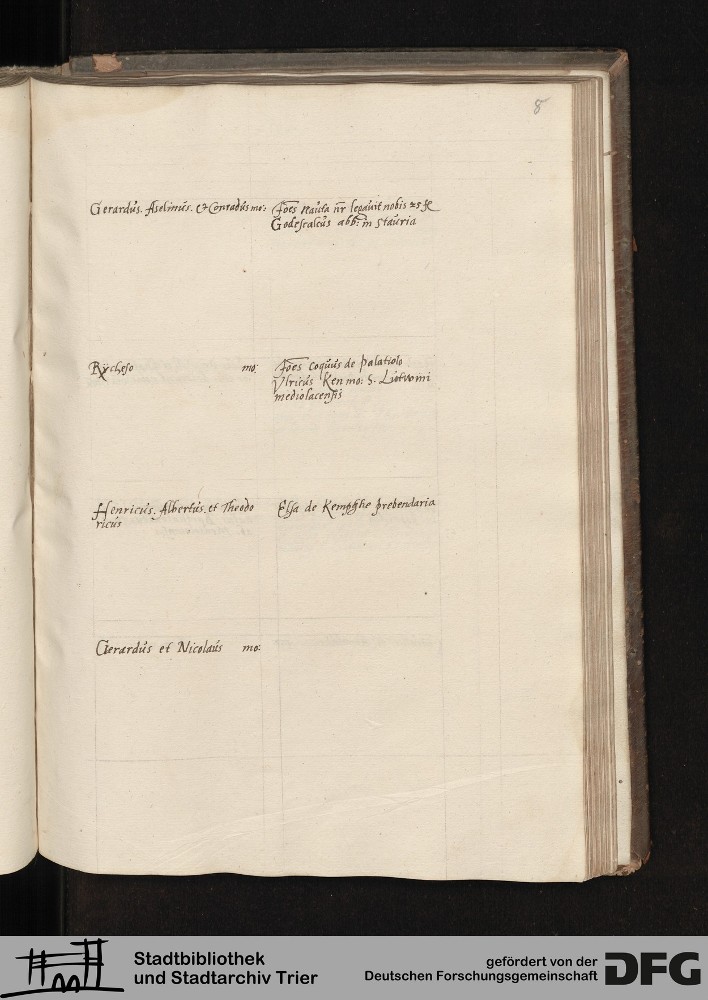 8
Gerardus. Aselinus. et Conradus mo:
Joēs nauta nr̄ legauit nobis 25
Godescalcus abb: in Stauria
Rÿcheso mo:
Joēs coquus de palatiolo
Vlricus Ken mo: S. Liutwini
mediolacensis
Henricus. Albertus. et Theodo
ricus
Elsa de Kempghe prebendaria
Gerardus et Nicolaus mo:
Stadtbibliothek
und Stadtarchiv Trier
gefördert von der
Deutschen Forschungsgemeinschaft
DFG